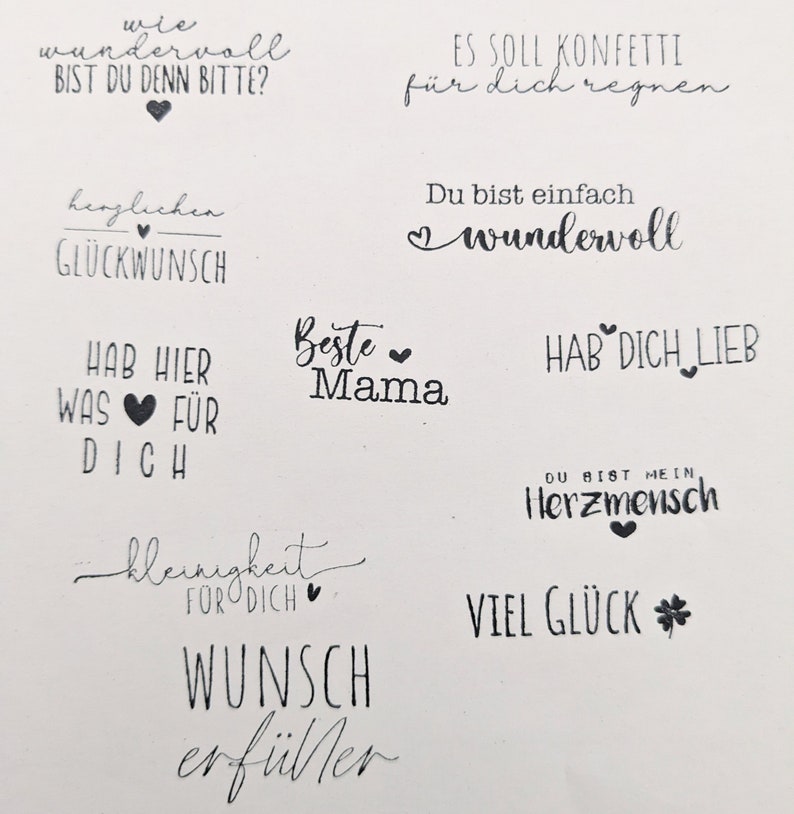 wie
wundervoll
BIST DU DENN BITTE?
ES SOLL KONFETTI
für dich regnen
herzlichen
GLÜCKWUNSCH
Du bist einfach
wundervoll
HAB HIER
WAS FÜR
DICH
Beste
Mama
HAB DICH LIEB
DU BIST MEIN
Herzmensch
kleinigkeit
FÜR DICH
VIEL GLÜCK
WUNSCH
erfüller